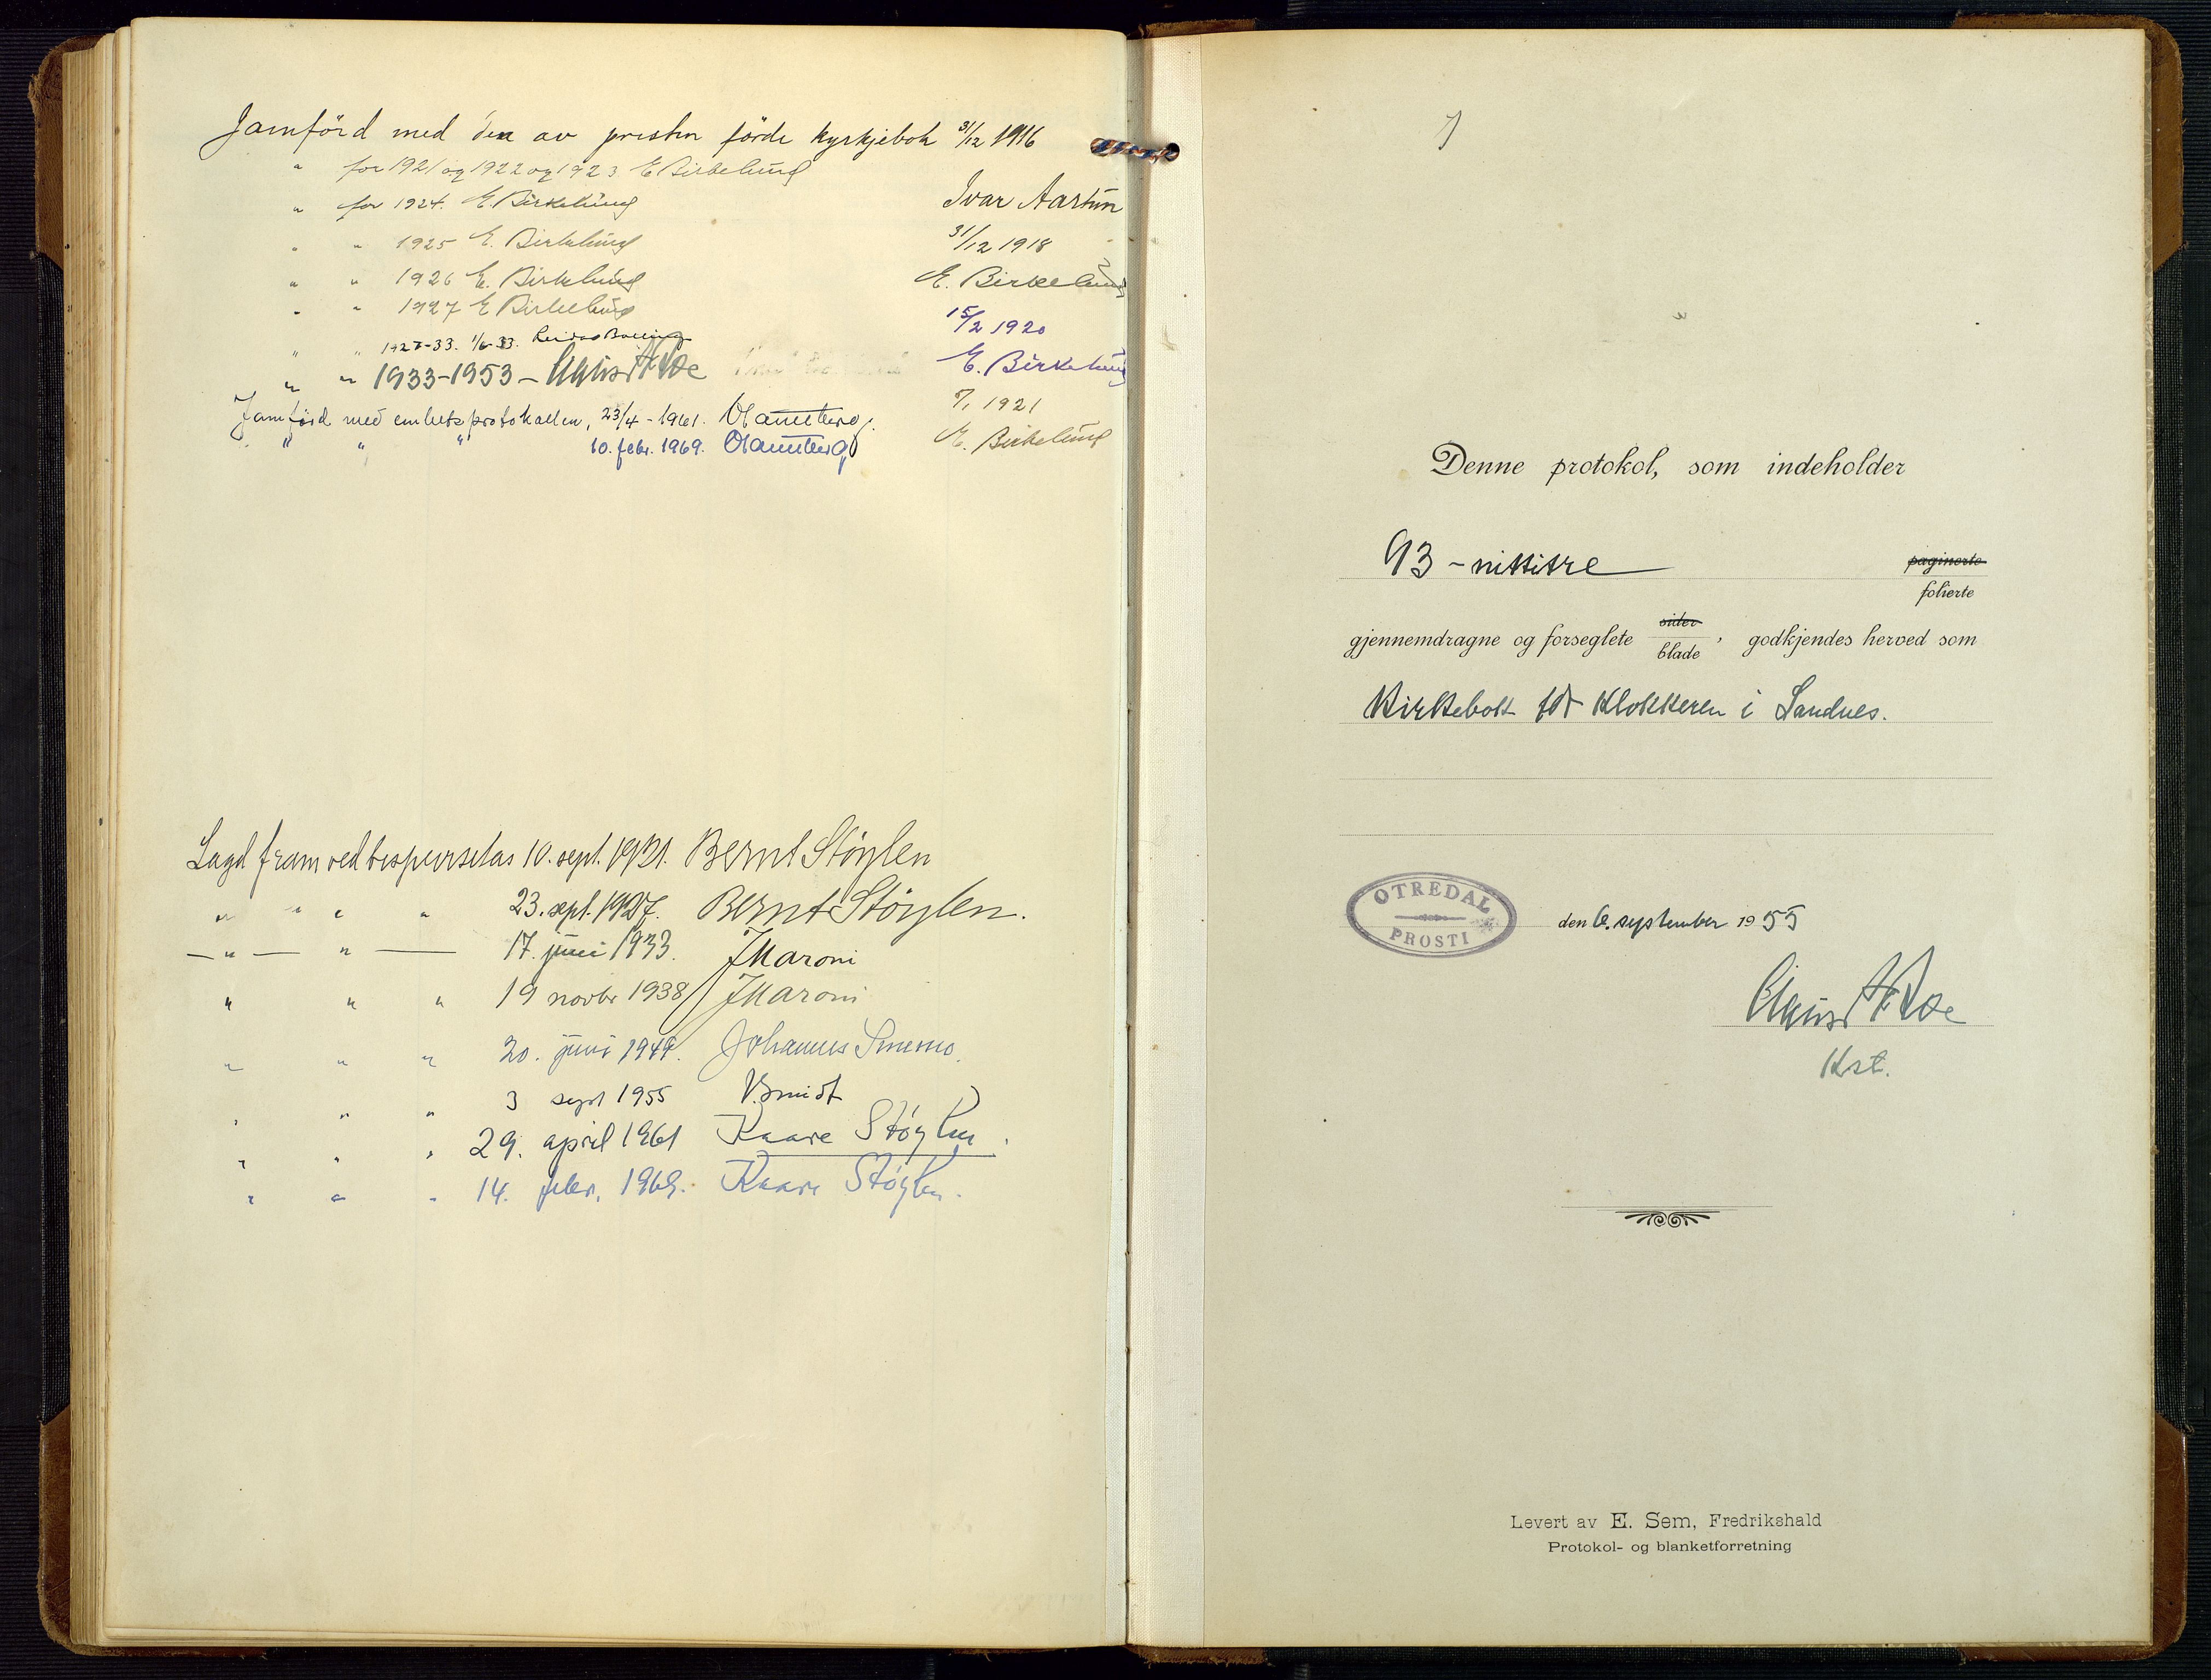 Jamförd med den av presten förde kyrkjebok 31/12 1916
" for 1921 og 1922 og 1923 E Birkelund
" for 1924. E. Birkelund
" " 1925 E. Birkelund
" " 1926 E. Birkelund
" " 1927 E Birkelund
" " 1927-33. 1/6-33.
" " 1933-1953-
Jamførd med embetsprotokollen, 23/4-1961.
" " " 10. febr. 1969.
Ivar Aartun
31/12 1918
E. Birkelund
15/2 1920
E. Birkelund
7/1 1921
E. Birkelund
Lagd fram ved bispevisitas 10. sept. 1921. Bernt Støylen
" " " " 23. sept. 1927. Bernt Støylen.
— " — " — 17. juni 1933. J Maroni
" " " 19 novbr 1938 J Maroni
" " " 20. juni 1949. Johannes Smemo.
" " " 3 sept 1955 J. Smidt
" " " 29. april 1961 Kaare Støylen.
" " " 14. febr. 1969. Kaare Støylen.
Denne protokol, som indeholder
93 - nittitre paginerte
folierte
gjennemdragne og forseglete sider
blade, godkjendes herved som
Kirkebok for klokkeren i Sandnes.
OTREDAL
PROSTI
den 6. september 1955
Kst.
Levert av E. Sem, Fredrikshald
Protokol- og blanketforretning